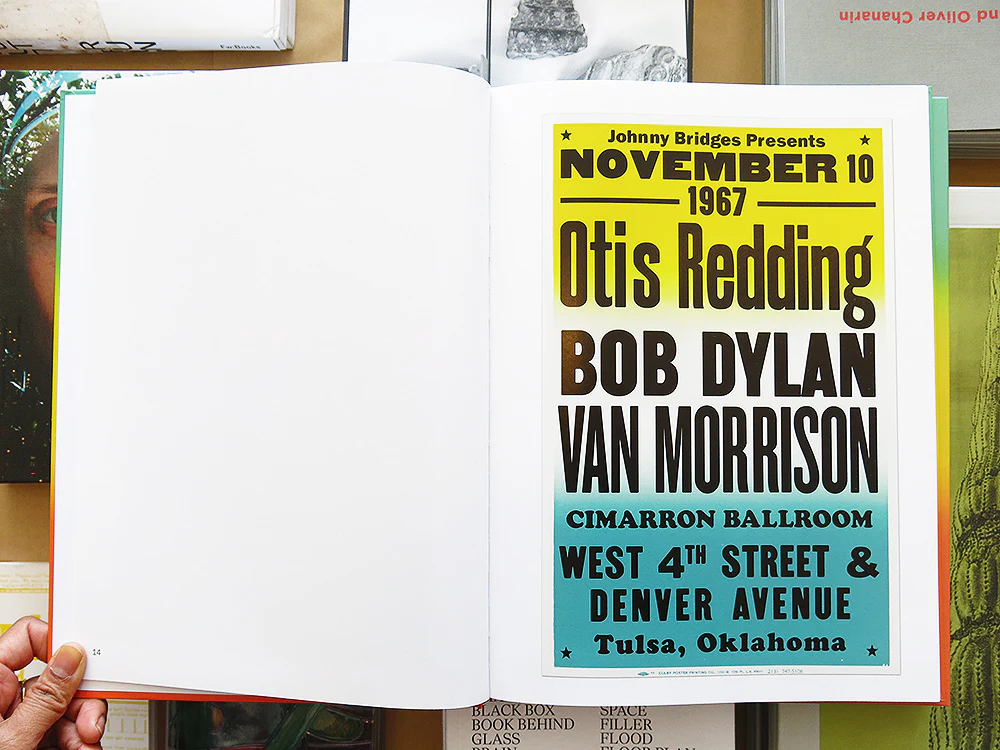 Fw:Books
nd Oliver Chanarin
Johnny Bridges Presents
NOVEMBER 10
1967
Otis Redding
BOB DYLAN
VAN MORRISON
CIMARRON BALLROOM
WEST 4TH STREET &
DENVER AVENUE
Tulsa, Oklahoma
14
BLACK BOX
BOOK BEHIND
GLASS
SPACE
FILLER
FLOOD
FLOOR PLAN